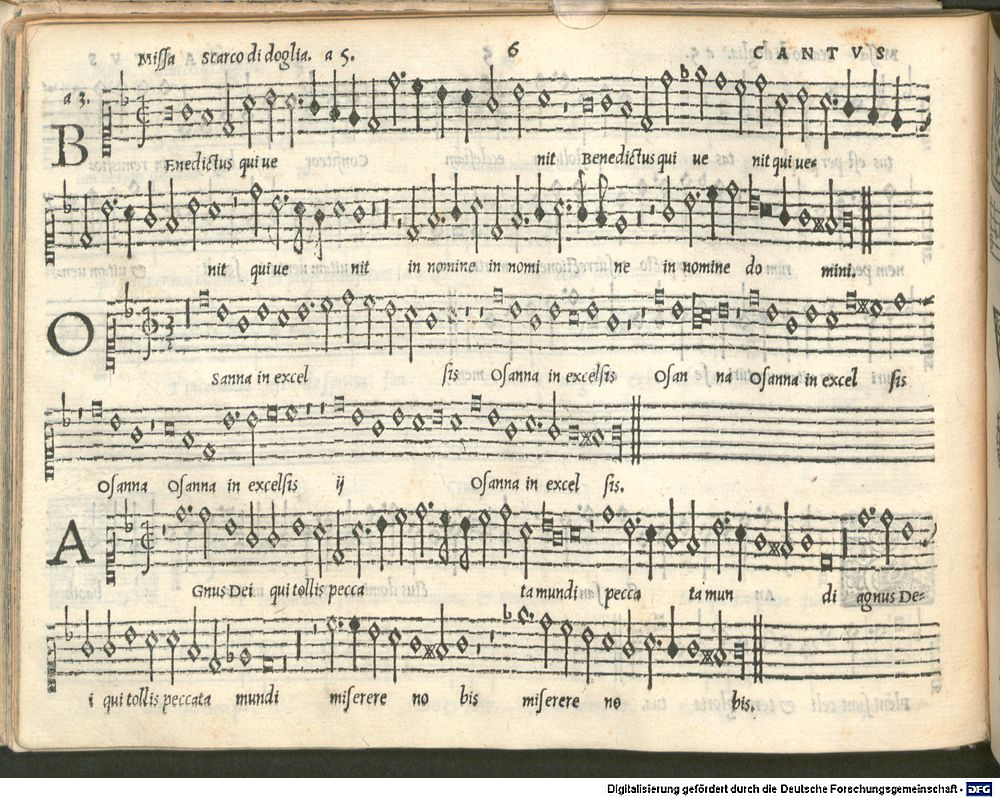 Missa scarco di doglia. a 5. 6 CANTVS
a 3.
BEnedictus qui ue nit Benedictus qui ue nit qui ues
nit qui ue nit in nomine in nomi ne in nomine do mini.
OSanna in excel sis Osanna in excelsis Osan na Osanna in excel sis
Osanna Osanna in excelsis ij Osanna in excel sis.
AGnus Dei qui tollis pecca ta mundi pecca ta mun di agnus De=
i qui tollis peccata mundi miserere no bis miserere no bis.
Digitalisierung gefördert durch die Deutsche Forschungsgemeinschaft - DFG